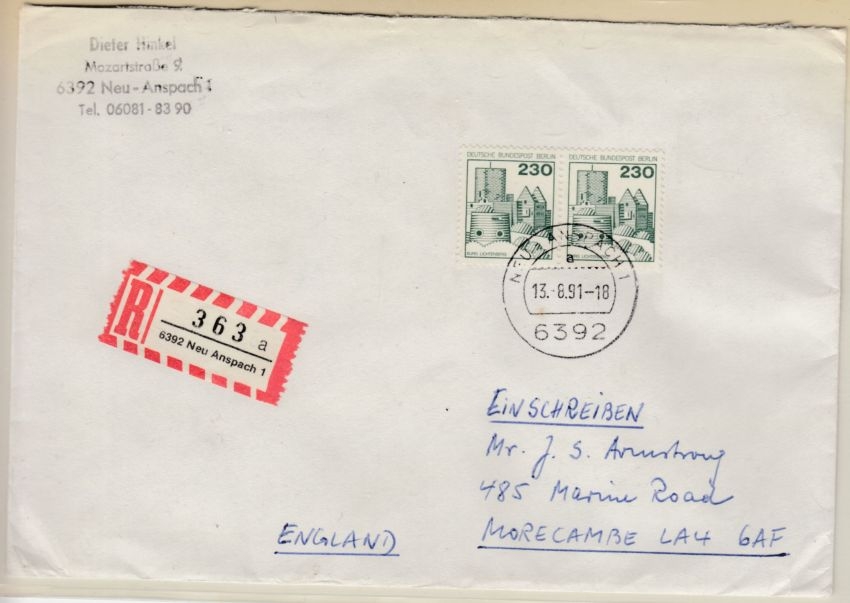 Dieter Hinkel
Mozartstraße 9
6392 Neu-Anspach 1
Tel. 06081-83 90
DEUTSCHE BUNDESPOST BERLIN
230
BURG LICHTENBERG
DEUTSCHE BUNDESPOST BERLIN
230
BURG LICHTENBERG
NEU ANSPACH 1
a
13.-8.91-18
6392
R
363 a
6392 Neu Anspach 1
EINSCHREIBEN
Mr. J. S. Armstrong
485 Marine Road
MORECAMBE LA4 6AF
ENGLAND